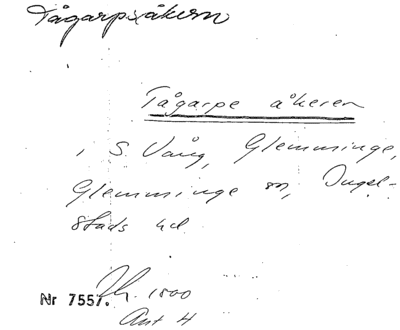 Tågarpsåkern
Tågarpe åkeren
i S. Vång, Glemminge,
Glemminge sn, Ingel-
stads hd
Nr 7557. Sk. 1800
Akt 4